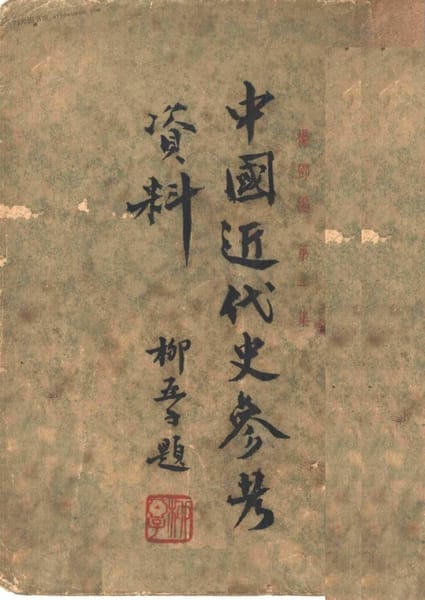 編第一集
中國近代史參考
資料
柳亞子題